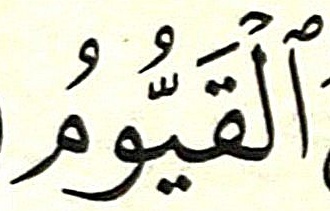 ٱلۡقَيُّومُ